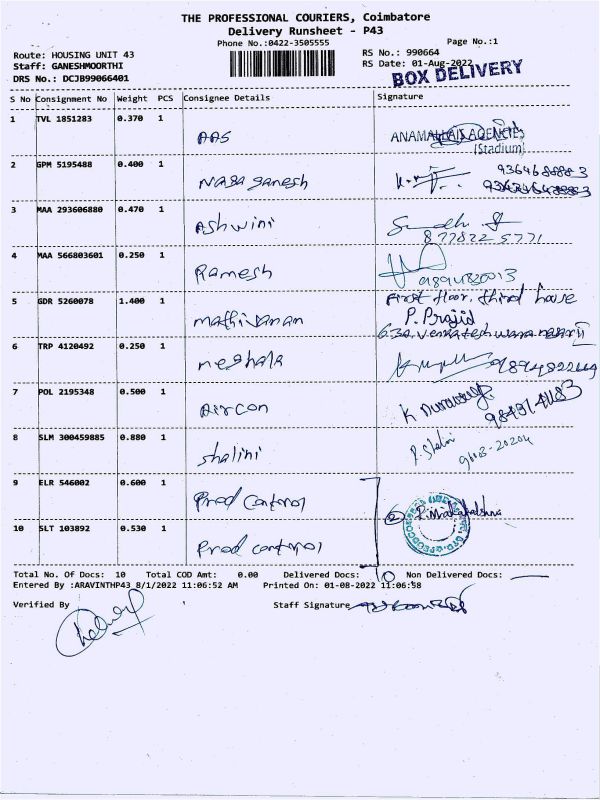 THE PROFESSIONAL COURIERS, Coimbatore
Delivery Runsheet - P43
Phone No.:0422-3505555
Page No.:1
Route: HOUSING UNIT 43
RS No.: 990664
Staff: GANESHMOORTHI
RS Date: 01-Aug-2022
DRS No.: DCJB99066401
BOX DELIVERY
S No Consignment No Weight PCS Consignee Details Signature
1 TVL 1851283 0.370 1 AAS ANAMALLAIS AGENCIES
(Stadium)
2 GPM 5195488 0.400 1 Naga ganesh
3 MAA 293606880 0.470 1 Ashwini
87782 25771
4 MAA 566803601 0.250 1 Ramesh
5 GDR 5260078 1.400 1 mathivanan First floor, third house
P. Prajid
6 TRP 4120492 0.250 1 meghala
7 POL 2195348 0.500 1 Aircon
8 SLM 300459885 0.880 1 Shalini
9 ELR 546002 0.600 1 Prod Control
10 SLT 103892 0.530 1 Prod control
Total No. Of Docs: 10 Total COD Amt: 0.00 Delivered Docs: 10 Non Delivered Docs:
Entered By :ARAVINTHP43 8/1/2022 11:06:52 AM Printed On: 01-08-2022 11:06:58
Verified By Staff Signature